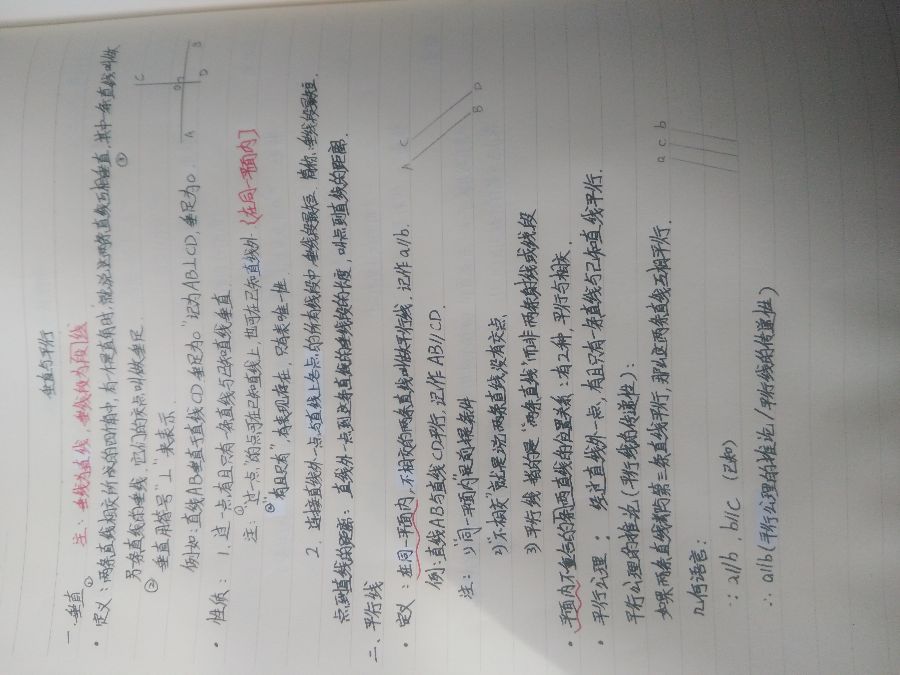 垂直与平行
一.垂直
注:垂线为直线,垂线段为段线
• 定义:①两条直线相交所成的四个角中,有一个是直角时,就说这两条直线互相垂直,其中一条直线叫做
另一条直线的垂线,它们的交点叫做垂足.
② 垂直用符号"⊥"来表示
③
例如:直线AB垂直于直线CD,垂足为O"记为AB⊥CD,垂足为O.
A O B C D
• 性质:1.过一点,有且只有一条直线与已知直线垂直
注:①"过一点"的点可在已知直线上,也可在已知直线外.(在同一平面内]
②"有且只有",有表现存在,只有表唯一性
2.连接直线外一点与直线上各点的所有线段中,垂线段最短.简称:垂线段最短.
点到直线的距离:直线外一点到这条直线的垂线段的长度,叫点到直线的距离.
二、平行线
• 定义:在同一平面内,不相交的两条直线叫做平行线.记作a//b.
例:直线AB与直线CD平行,记作AB//CD.
A C B D
注:1)"同一平面内"是前提条件
2)"不相交"就是说两条直线没有交点.
3)平行线指的是"两条直线"而非两条射线或线段
• 平面内不重合的两直线的位置关系:有2种,平行与相交.
• 平行公理:经过直线外一点,有且只有一条直线与已知直线平行.
平行公理的推论(平行线的传递性):
如果两条直线都和第三条直线平行,那么这两条直线互相平行.
a c b
几何语言:
∵a//b,b//c(已知)
∴a//b(平行公理的推论/平行线的传递性)